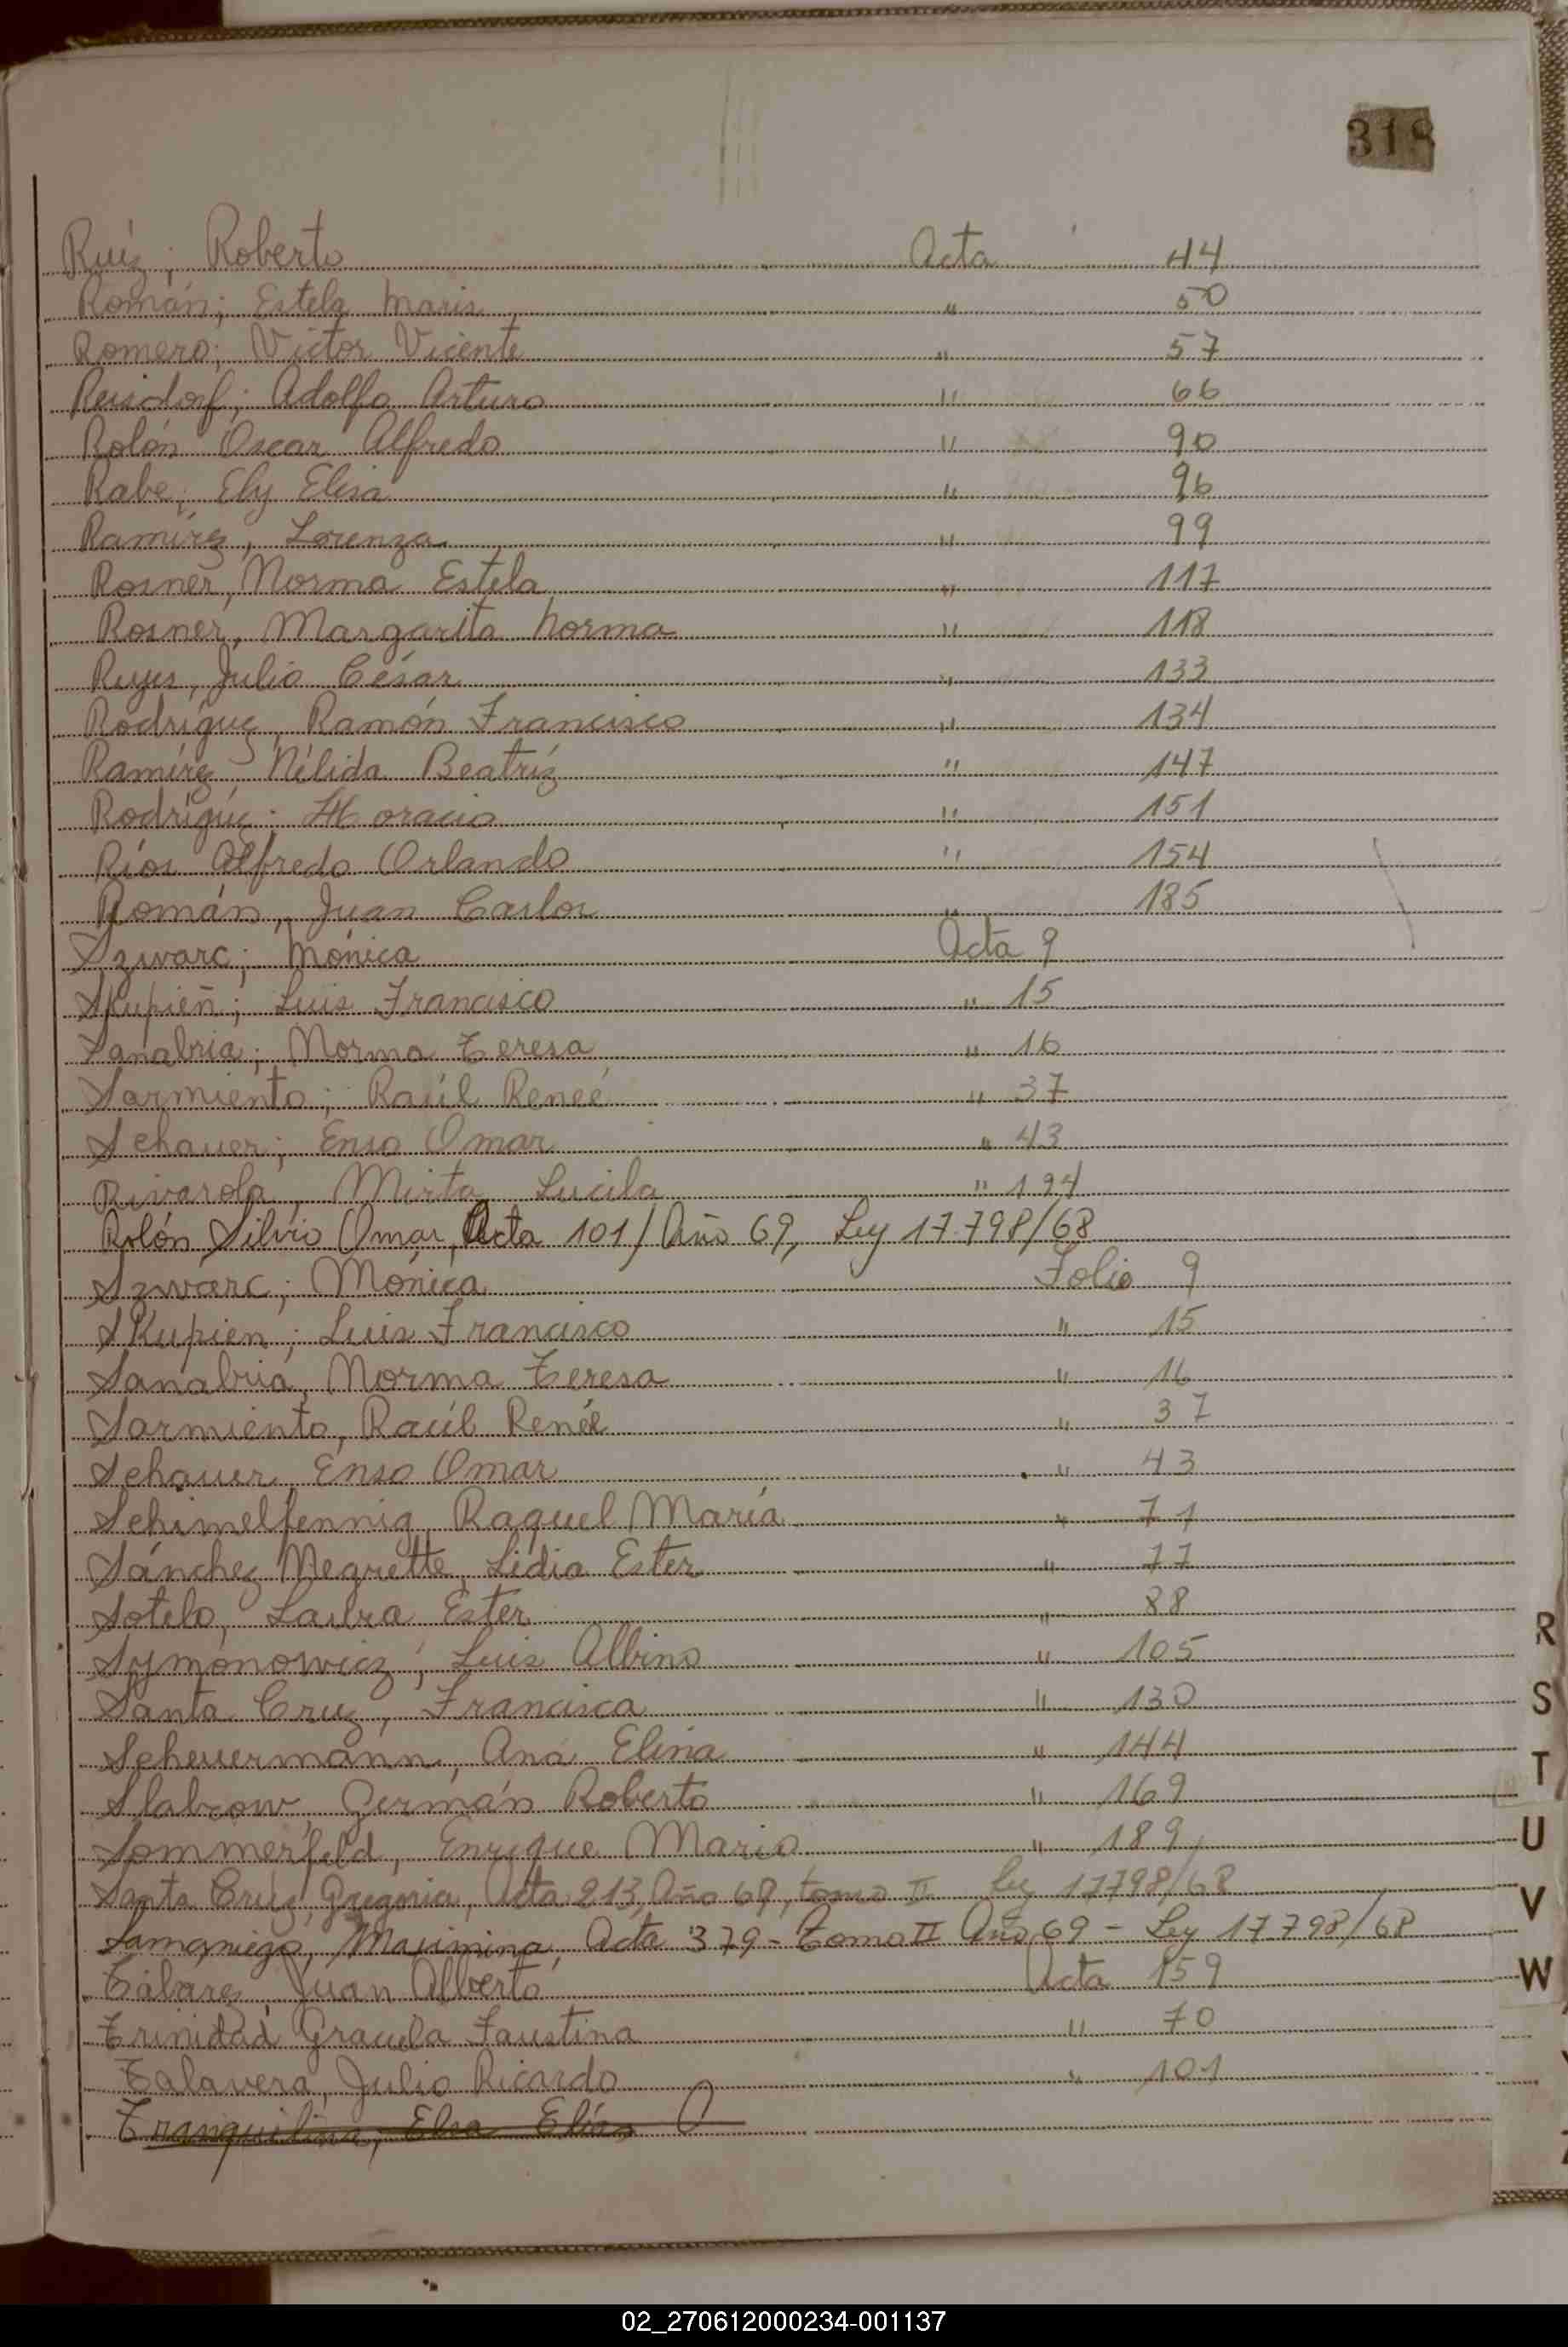 318
Ruíz; Roberto Acta 44
Román; Estela Maris " 50
Romero; Víctor Vicente " 57
Reisdorf; Adolfo Arturo " 66
Rolón Oscar Alfredo " 90
Rabe; Ely Elisa " 96
Ramírez, Lorenza " 99
Rosner, Norma Estela " 117
Rosner, Margarita Norma " 118
Reyes, Julio César " 133
Rodríguez, Ramón Francisco " 134
Ramírez Nélida Beatríz " 147
Rodríguez; Horacio " 151
Ríos Alfredo Orlando " 154
Román, Juan Carlos " 185
Szwarc; Mónica Acta 9
Skupień; Luis Francisco " 15
Sanabria; Norma Teresa " 16
Sarmiento; Raúl Reneé " 37
Schauer; Enso Omar " 43
Rivarola, Mirta Lucila " 194
Rolón Silvio Omar, Acta 101/Año 69, Ley 17.798/68
Szwarc; Mónica Folio 9
Skupien; Luis Francisco " 15
Sanabria, Norma Teresa " 16
Sarmiento, Raúl René " 37
Schauer, Enso Omar " 43
Schimelfennig, Raquel María " 71
Sánchez Negrette, Lidia Ester " 77
Sotelo, Laura Ester " 88
Symonowicz; Luis Albino " 105
Santa Cruz, Francisca " 130
Scheuermann, Ana Elina " 144
Slabzow, Germán Roberto " 169
Sommerfeld, Enrique Mario " 189
Santa Cruz, Gregoria, Acta 213, Año 69, tomo II Ley 17798/68
Samaniego, Maximina, Acta 379 - Tomo II Año 69 - Ley 17798/68
Tábarez, Juan Alberto Acta 159
Trinidad Graciela Faustina " 70
Talavera, Julio Ricardo " 101
Tranquilina, Elsa Elías
R
S
T
U
V
W
02_270612000234-001137